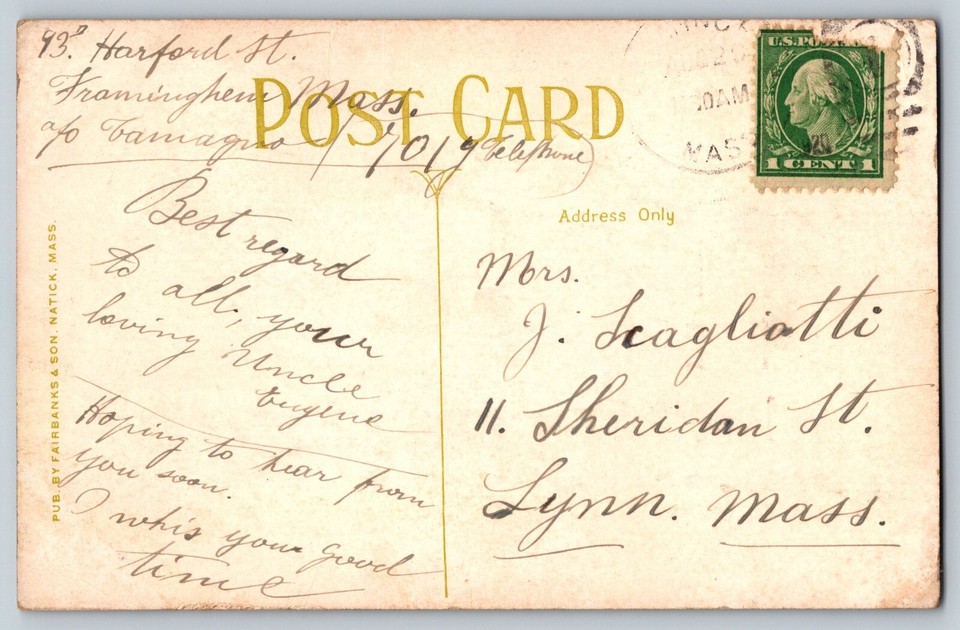 93 Harford St.
Framinghem Mass.
c/o Tamagno / 7019 Telephone
POST CARD
Address Only
Best regard
to all, your
loving Uncle
Eugene
Hoping to hear from
you soon.
I whis your good
time
Mrs.
J. Scagliotti
11. Sheridan St.
Lynn. Mass.
PUB. BY FAIRBANKS & SON. NATICK, MASS.
AUG 20
30 AM
MASS
U.S. POSTAGE
1 CENT 1